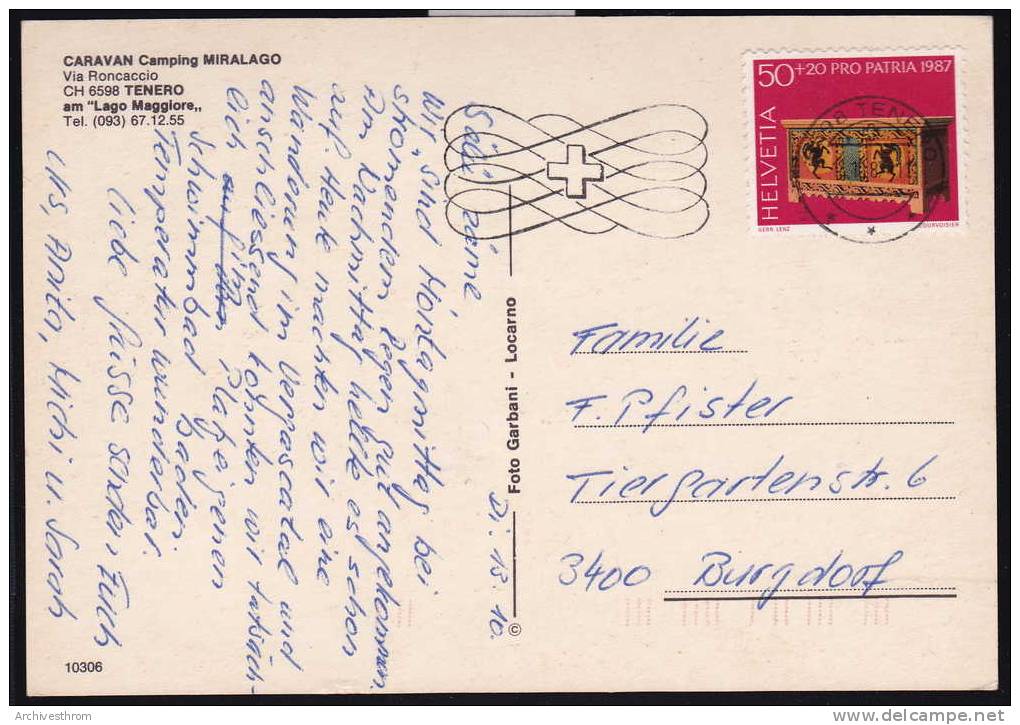 CARAVAN Camping MIRALAGO
Via Roncaccio
CH 6598 TENERO
am "Lago Maggiore„
Tel. (093) 67.12.55
Di. 13.10.
Sali zäme,
Wir sind Montagmittag bei
strömendem Regen gut angekommen.
Am Nachmittag hellte es schon
auf. Heute machten wir eine
Wanderung im Verzascatal und
anschliessend konnten wir tatsäch-
lich im Platzeigenen
Schwimmbad baden.
Temperatur wunderbar.
Liebe Grüsse senden Euch
Urs, Anita, Michi u. Sarah
Foto Garbani - Locarno
©
50+20 PRO PATRIA 1987
HELVETIA
GERR. LENZ
COURVOISIER
TENERO
Familie
F. Pfister
Tiergartenstr. 6
3400 Burgdorf
10306
Archivesthrom
delcampe.net